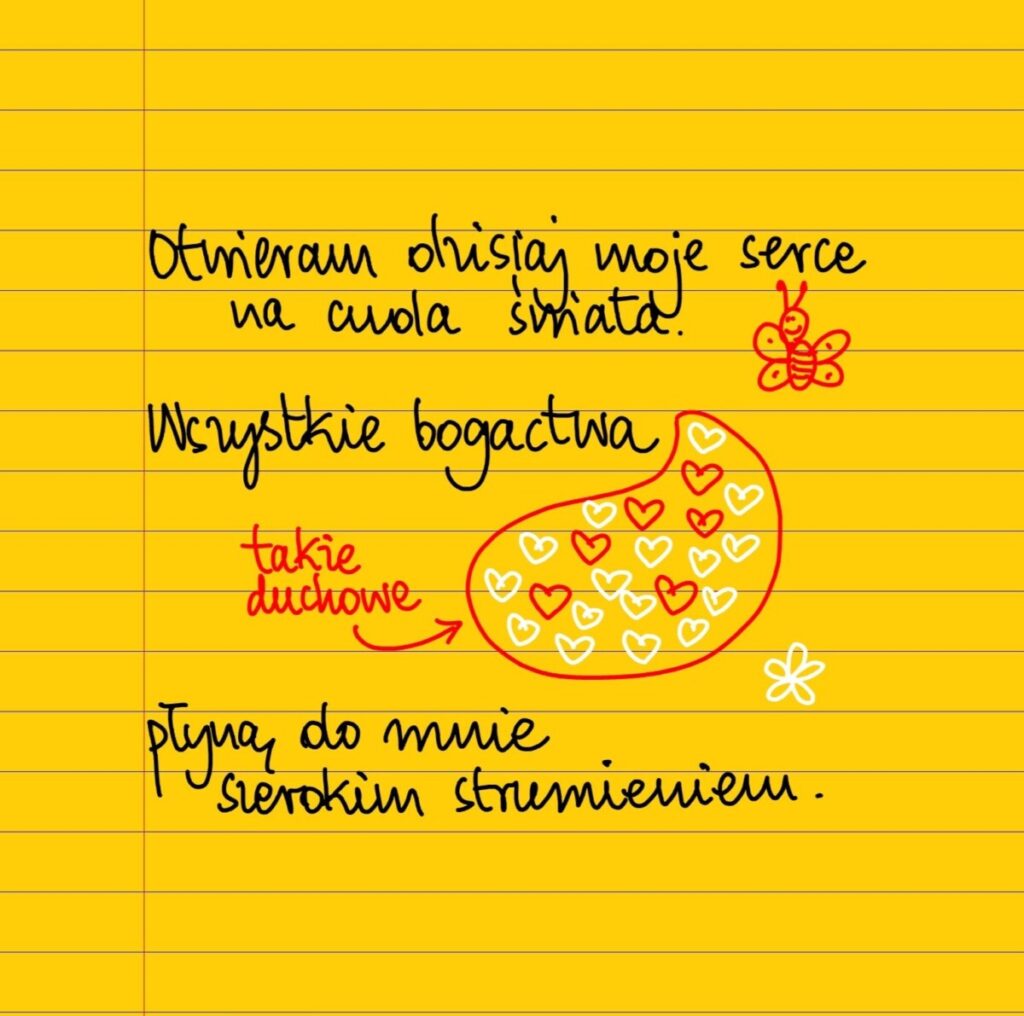 Otwieram dzisiaj moje serce
na cuda świata.
Wszystkie bogactwa
takie
duchowe
płyną do mnie
szerokim strumieniem.